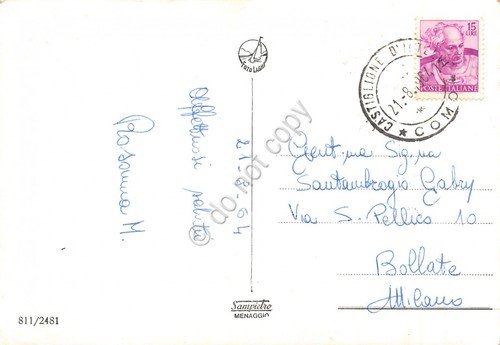 Affettuosi saluti
Rosanna M.
21-8-64
FOTO LARIO
Sampietro
MENAGGIO
811/2481
15
LIRE
POSTE ITALIANE
CASTIGLIONE D'INTE
21-8
COMO
Gent.ma Sig.na
Santambrogio Gabry
Via S. Pellico 10
Bollate
Milano
do not copy